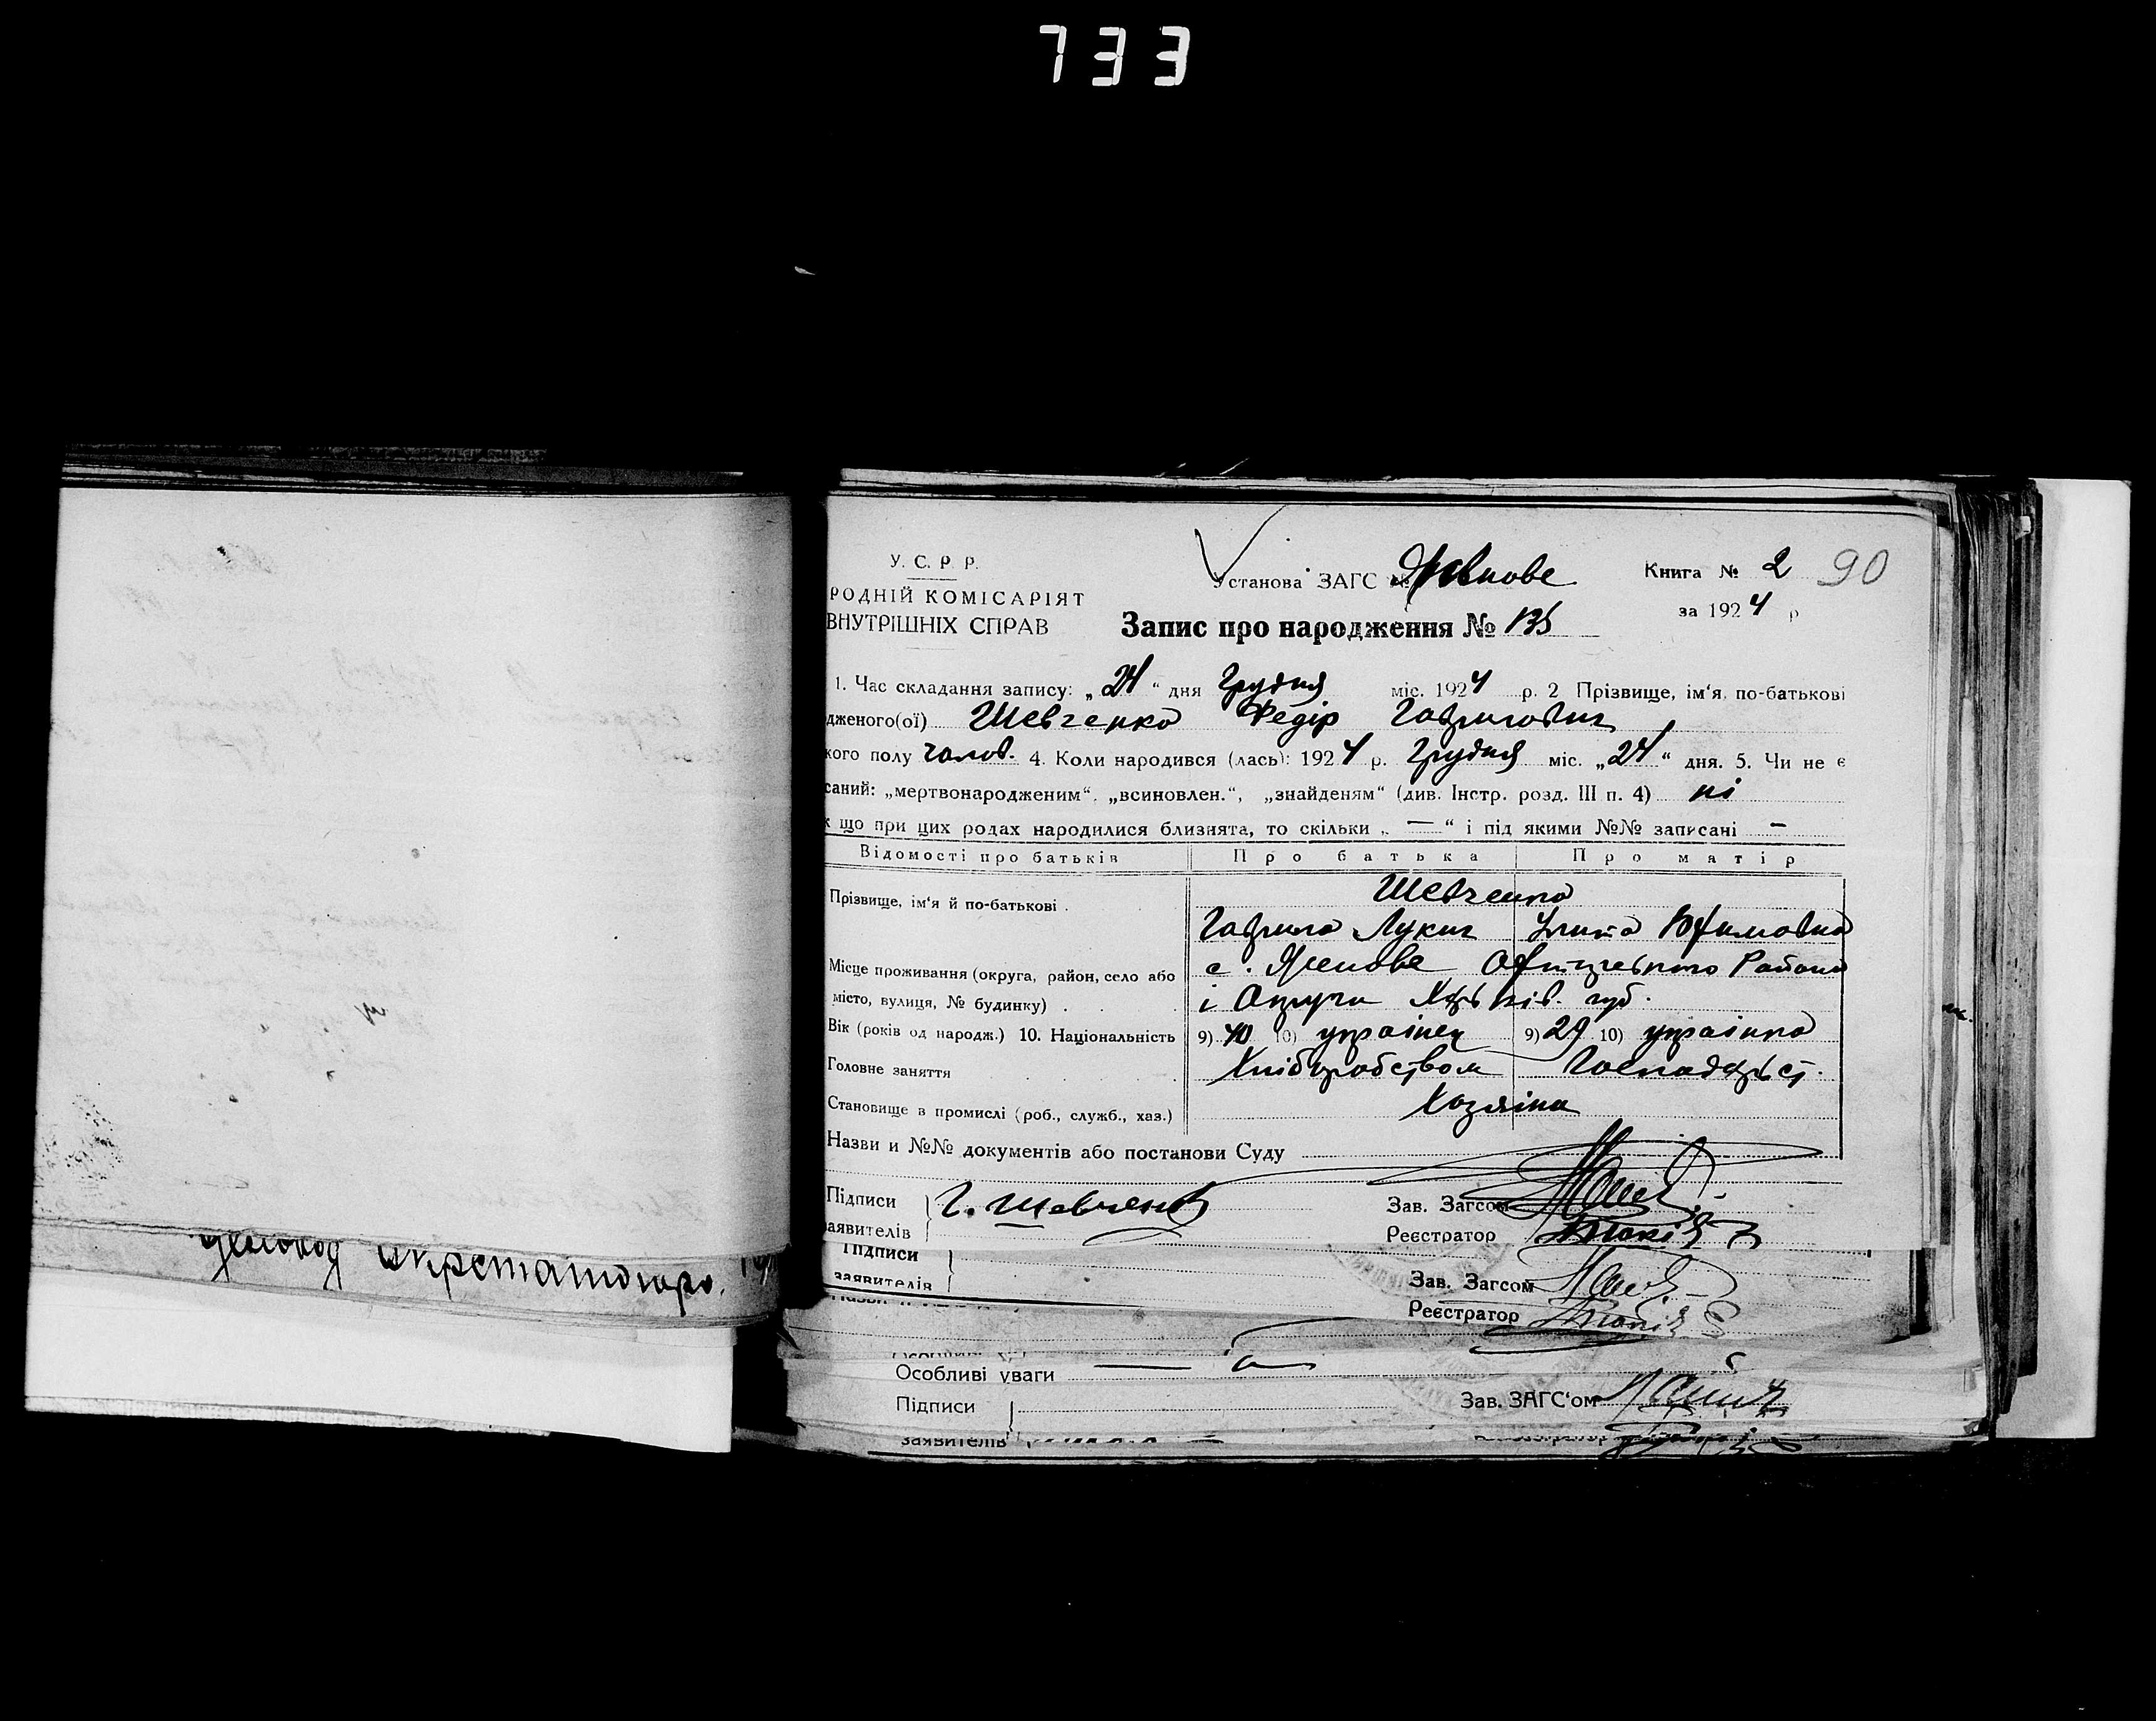 733
У. С. Р. Р.
РОДНІЙ КОМІСАРІЯТ
ВНУТРІШНІХ СПРАВ
Установа ЗАГС №
Книга № 2 90
за 1924 р
Запис про народження № 135
1. Час складання запису: „24" дня Грудня міс. 1924 р. 2 Прізвище, ім'я, по-батькові
дженого(ої) Шевченко Федір Гаврилович
кого полу чолов. 4. Коли народився (лась): 1924 р. Грудня міс. „24" дня. 5. Чи не є
саний: „мертвонародженим", „всиновлен.", „знайденям" (див. Інстр. розд. III п. 4) ні
к що при цих родах народилися близнята, то скільки „ — " і під якими №№ записані —
Відомості про батьків Про батька Про матір
Прізвище, ім'я й по-батькові . Шевченко
Гаврило Лукич Юхимовна
Місце проживання (округа, район, село або с. Района
місто, вулиця, № будинку) . і Округи Харьків. губ.
Вік (років од народж.) 10. Національність 9) 40 10) украінец 9) 29 10) украінка
Головне заняття Хліборобством Господарьст.
Становище в промислі (роб., служб., хаз.) Хозяіна
Назви и №№ документів або постанови Суду
Підписи Г. Шевченко Зав. Загсом
аявителів Реєстратор
Підписи
заявителів
Зав. Загсом
Реєстратор
Особливі уваги
Підписи Зав. ЗАГС'ом
заявителів